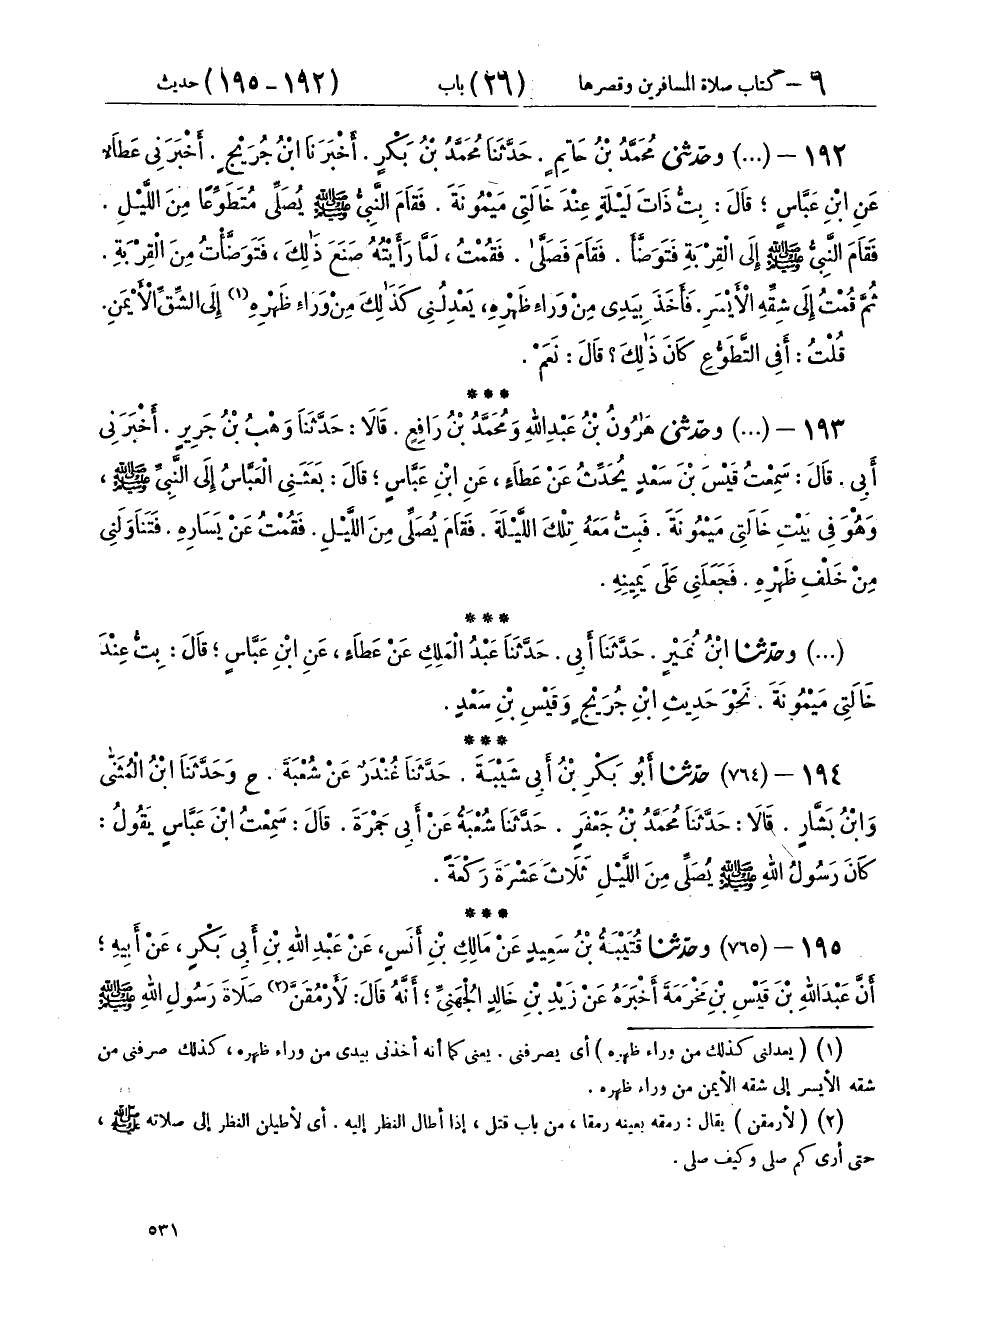 ٦ – كتاب صلاة المسافرين وقصرها (٢٦) باب (١٩٢-١٩٥) حديث
١٩٢ – (...) وحَدَّثَنِي مُحَمَّدُ بْنُ حَاتِمٍ. حَدَّثَنَا مُحَمَّدُ بْنُ بَكْرٍ. أَخْبَرَنَا ابْنُ جُرَيْجٍ. أَخْبَرَنِي عَطَاءٌ
عَنِ ابْنِ عَبَّاسٍ؛ قَالَ: بِتُّ ذَاتَ لَيْلَةٍ عِنْدَ خَالَتِي مَيْمُونَةَ. فَقَامَ النَّبِيُّ ﷺ يُصَلِّي مُتَطَوِّعًا مِنَ اللَّيْلِ.
فَقَامَ النَّبِيُّ ﷺ إِلَى الْقِرْبَةِ فَتَوَضَّأَ. فَقَامَ فَصَلَّى. فَقُمْتُ، لَمَّا رَأَيْتُهُ صَنَعَ ذَٰلِكَ، فَتَوَضَّأْتُ مِنَ الْقِرْبَةِ.
ثُمَّ قُمْتُ إِلَى شِقِّهِ الْأَيْسَرِ. فَأَخَذَ بِيَدِي مِنْ وَرَاءِ ظَهْرِهِ، يَعْدِلُنِي كَذَٰلِكَ مِنْ وَرَاءِ ظَهْرِهِ(١) إِلَى الشِّقِّ الْأَيْمَنِ.
قُلْتُ: أَفِي التَّطَوُّعِ كَانَ ذَٰلِكَ؟ قَالَ: نَعَمْ.
***
١٩٣ – (...) وحَدَّثَنِي هَٰرُونُ بْنُ عَبْدِ اللهِ وَمُحَمَّدُ بْنُ رَافِعٍ. قَالَا: حَدَّثَنَا وَهْبُ بْنُ جَرِيرٍ. أَخْبَرَنِي
أَبِي. قَالَ: سَمِعْتُ قَيْسَ بْنَ سَعْدٍ يُحَدِّثُ عَنْ عَطَاءٍ، عَنِ ابْنِ عَبَّاسٍ؛ قَالَ: بَعَثَنِي الْعَبَّاسُ إِلَى النَّبِيِّ ﷺ،
وَهُوَ فِي بَيْتِ خَالَتِي مَيْمُونَةَ. فَبِتُّ مَعَهُ تِلْكَ اللَّيْلَةَ. فَقَامَ يُصَلِّي مِنَ اللَّيْلِ. فَقُمْتُ عَنْ يَسَارِهِ. فَتَنَاوَلَنِي
مِنْ خَلْفِ ظَهْرِهِ. فَجَعَلَنِي عَلَى يَمِينِهِ.
***
(...) وحَدَّثَنَا ابْنُ نُمَيْرٍ. حَدَّثَنَا أَبِي. حَدَّثَنَا عَبْدُ الْمَلِكِ عَنْ عَطَاءٍ، عَنِ ابْنِ عَبَّاسٍ؛ قَالَ: بِتُّ عِنْدَ
خَالَتِي مَيْمُونَةَ. نَحْوَ حَدِيثِ ابْنِ جُرَيْجٍ وَقَيْسِ بْنِ سَعْدٍ.
***
١٩٤ – (٧٦٤) حَدَّثَنَا أَبُو بَكْرِ بْنُ أَبِي شَيْبَةَ. حَدَّثَنَا غُنْدَرٌ عَنْ شُعْبَةَ. ح وَحَدَّثَنَا ابْنُ الْمُثَنَّى
وَابْنُ بَشَّارٍ. قَالَا: حَدَّثَنَا مُحَمَّدُ بْنُ جَعْفَرٍ. حَدَّثَنَا شُعْبَةُ عَنْ أَبِي جَمْرَةَ. قَالَ: سَمِعْتُ ابْنَ عَبَّاسٍ يَقُولُ:
كَانَ رَسُولُ اللهِ ﷺ يُصَلِّي مِنَ اللَّيْلِ ثَلَاثَ عَشْرَةَ رَكْعَةً.
***
١٩٥ – (٧٦٥) وحَدَّثَنَا قُتَيْبَةُ بْنُ سَعِيدٍ عَنْ مَالِكِ بْنِ أَنَسٍ، عَنْ عَبْدِ اللهِ بْنِ أَبِي بَكْرٍ، عَنْ أَبِيهِ؛
أَنَّ عَبْدَ اللهِ بْنَ قَيْسِ بْنِ مَخْرَمَةَ أَخْبَرَهُ عَنْ زَيْدِ بْنِ خَالِدٍ الْجُهَنِيِّ؛ أَنَّهُ قَالَ: لَأَرْمُقَنَّ(٢) صَلَاةَ رَسُولِ اللهِ ﷺ
(١) (يعدلنى كذلك من وراء ظهره) أى يصرفنى. يعنى كما أنه أخذنى بيدى من وراء ظهره، كذلك صرفنى من
شقه الأيسر إلى شقه الأيمن من وراء ظهره.
(٢) (لأرمقن) يقال: رمقه بعينه رمقا، من باب قتل، إذا أطال النظر إليه. أى لأطيلن النظر إلى صلاته ﷺ،
حتى أرى كم صلى وكيف صلى.
٥٣١